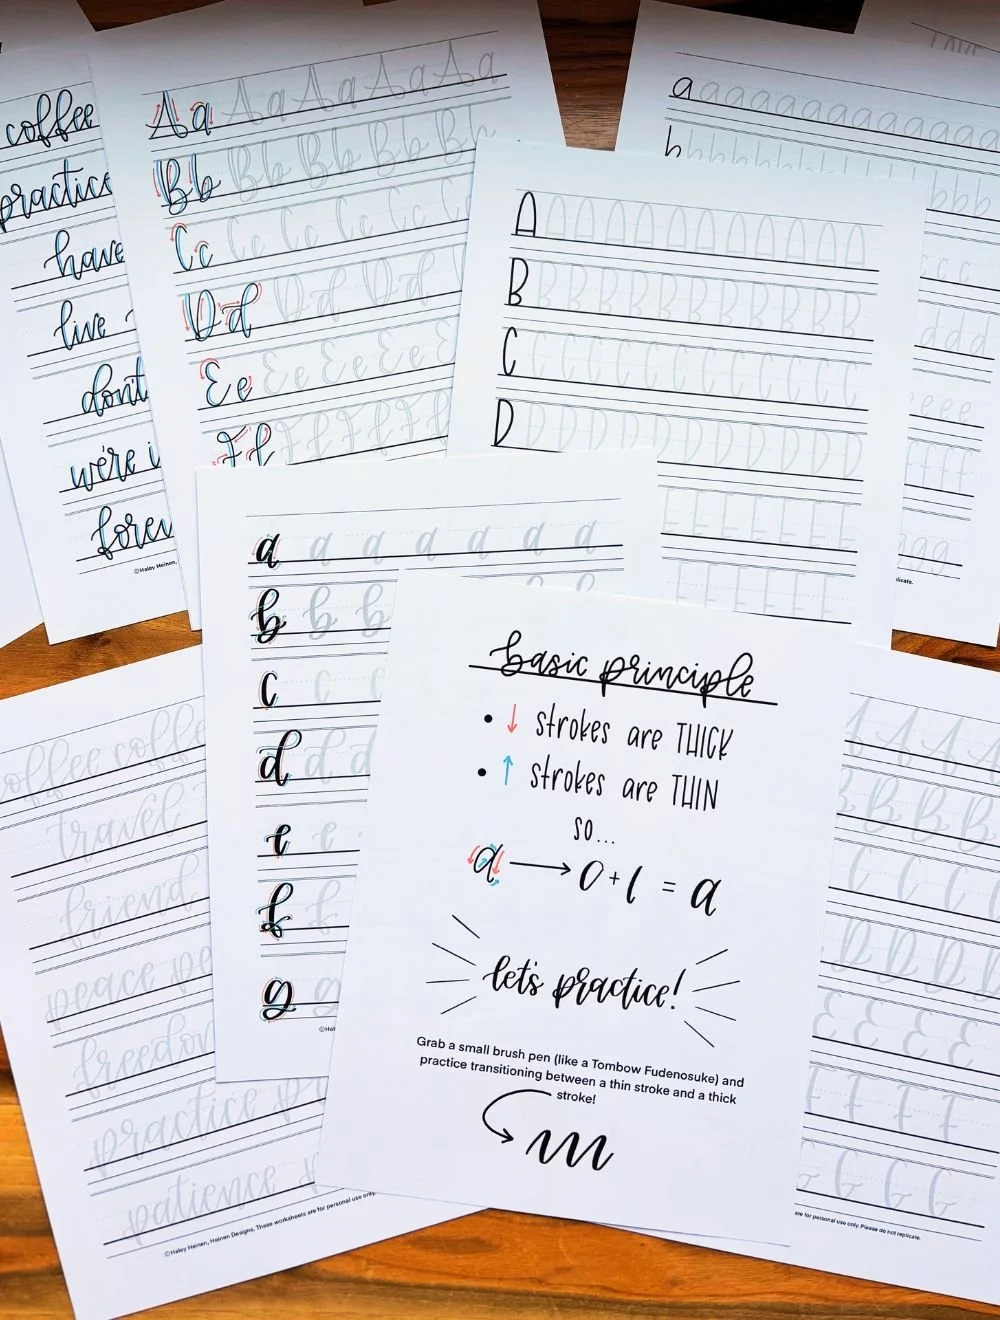 coffee
practice
have
live
don't
we're i
forev
©Haley Heinen,
Aa Aa Aa Aa Aa
Bb Bb Bb Bb Bb
Cc Cc Cc Cc Cc C
Dd Dd Dd
Ee Ee Ee Ee E
Ff f f f f
a a a a a a a a a a a a
b b b b b b b b b b b b
c c c
d d d
e e e e
f f f f
g g g
A A A A A A A A A A A A
B B B B B B B B B B B B
C C C C C C C C C C C C
D D D D D D D D D D D D
E E E E E E
F F F F F F
a a a a a a a
b b b
c c c
d d d
e e
f f
g g
©Hal
coffee coffe
travel
friend
peace pe
freedom
practice p
patience
©Haley Heinen, Heinen Designs. These worksheets are for personal use only.
basic principle
• ↓ strokes are THICK
• ↑ strokes are THIN
SO...
a → o + l = a
let's practice!
Grab a small brush pen (like a Tombow Fudenosuke) and
practice transitioning between a thin stroke and a thick
stroke!
A A A A
B B B B
C C C C
D D D D
E E E E
F F F
G G G
are for personal use only. Please do not replicate.